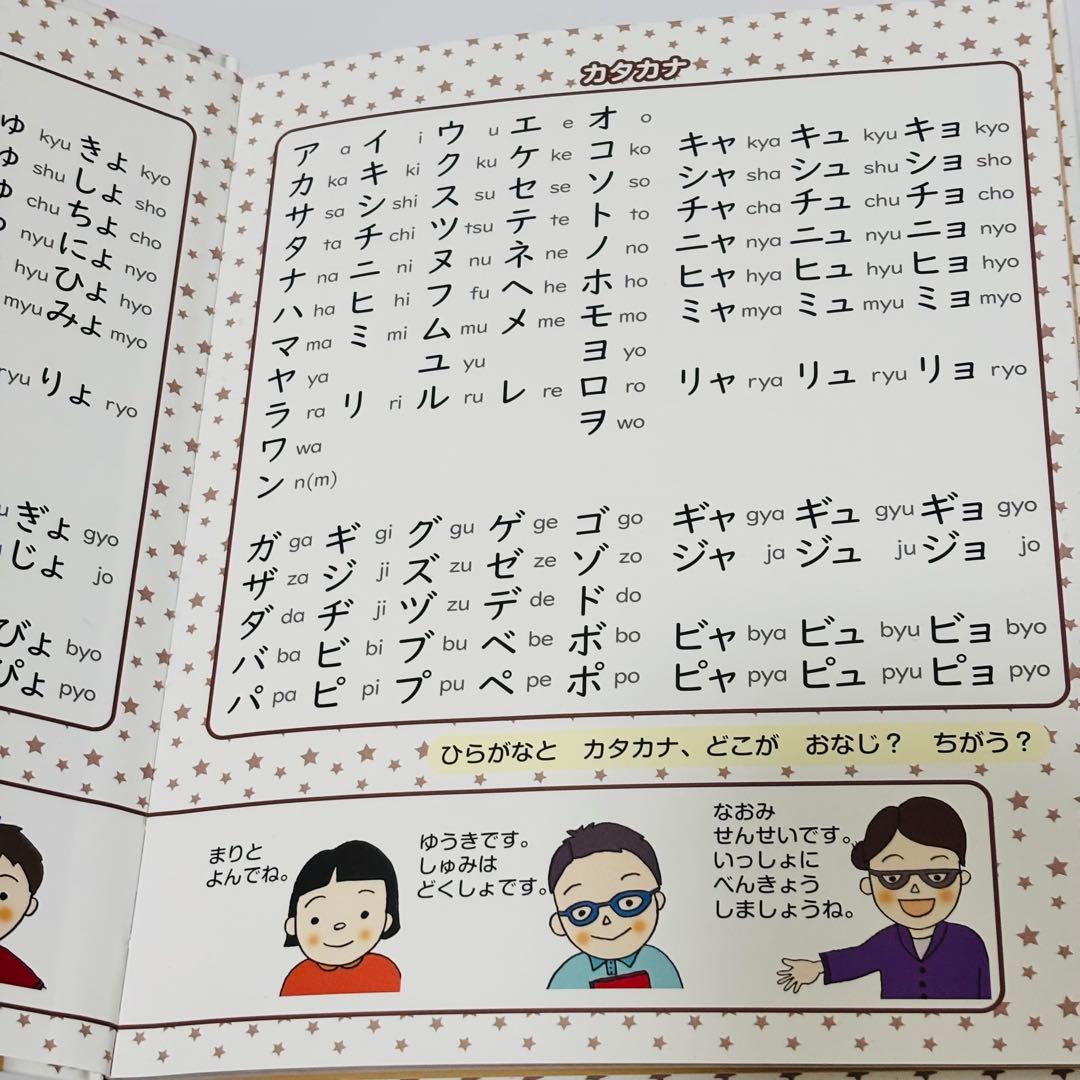 ゅ kyu きょ kyo
shu しょ sho
chu ちょ cho
nyu にょ nyo
hyu ひょ hyo
myu みょ myo
ryu りょ ryo
ぎょ gyo
じょ jo
びょ byo
ぴょ pyo
カタカナ
ア a イ i ウ u エ e オ o
カ ka キ ki ク ku ケ ke コ ko キャ kya キュ kyu キョ kyo
サ sa シ shi ス su セ se ソ so シャ sha シュ shu ショ sho
タ ta チ chi ツ tsu テ te ト to チャ cha チュ chu チョ cho
ナ na ニ ni ヌ nu ネ ne ノ no ニャ nya ニュ nyu ニョ nyo
ハ ha ヒ hi フ fu ヘ he ホ ho ヒャ hya ヒュ hyu ヒョ hyo
マ ma ミ mi ム mu メ me モ mo ミャ mya ミュ myu ミョ myo
ヤ ya ユ yu ヨ yo
ラ ra リ ri ル ru レ re ロ ro リャ rya リュ ryu リョ ryo
ワ wa ヲ wo
ン n(m)
ガ ga ギ gi グ gu ゲ ge ゴ go ギャ gya ギュ gyu ギョ gyo
ザ za ジ ji ズ zu ゼ ze ゾ zo ジャ ja ジュ ju ジョ jo
ダ da ヂ ji ヅ zu デ de ド do
バ ba ビ bi ブ bu ベ be ボ bo ビャ bya ビュ byu ビョ byo
パ pa ピ pi プ pu ペ pe ポ po ピャ pya ピュ pyu ピョ pyo
ひらがなと カタカナ、どこが おなじ？ ちがう？
まりと
よんでね。
ゆうきです。
しゅみは
どくしょです。
なおみ
せんせいです。
いっしょに
べんきょう
しましょうね。